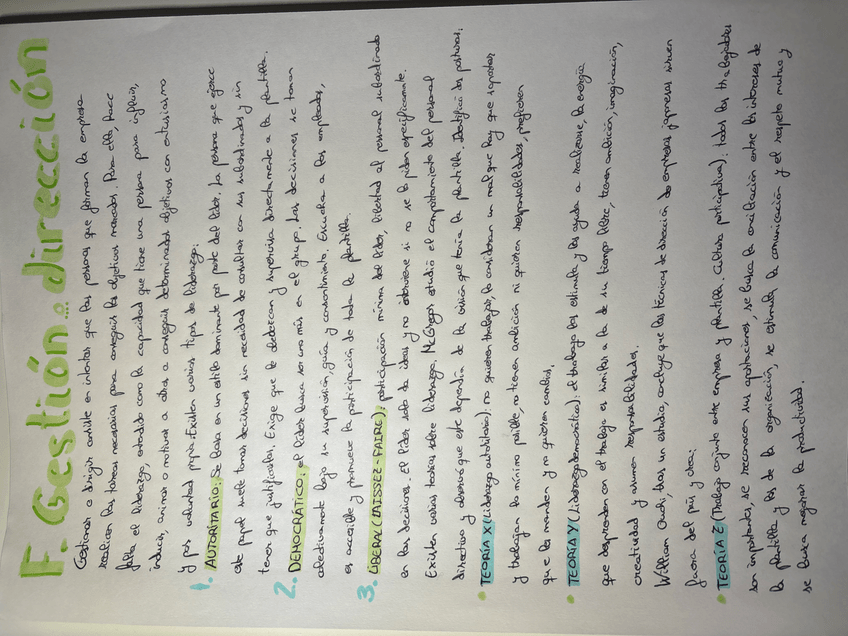 F. Gestión o dirección
Gestionar o dirigir consiste en intentar que las personas que forman la empresa
realicen las tareas necesarias para conseguir los objetivos marcados. Para ello, hace
falta el liderazgo, entendido como la capacidad que tiene una persona para influir,
inducir, animar o motivar a otros a conseguir determinados objetivos con entusiasmo
y por voluntad propia. Existen varios tipos de liderazgo:
1. AUTORITARIO: Se basa en un estilo dominante por parte del líder. La persona que ejerce
este papel suele tomar decisiones sin necesidad de consultar con sus subordinados y sin
tener que justificarlas. Exige que le obedezcan y supervisa directamente a la plantilla.
2. DEMOCRÁTICO: el líder busca ser uno más en el grupo. Las decisiones se toman
colectivamente bajo su supervisión, guía y consentimiento. Escucha a los empleados,
es accesible y promueve la participación de toda la plantilla.
3. LIBERAL (LAISSEZ-FAIRE): participación mínima del líder, libertad al personal subordinado
en las decisiones. El líder solo da ideas y no interviene si no se lo piden específicamente.
Existen varias teorías sobre liderazgo. McGregor estudió el comportamiento del personal
directivo y observó que este dependía de la visión que tenía la plantilla. Identificó dos posturas:
• TEORÍA X (Liderazgo autoritario): no quieren trabajar, lo consideran un mal que hay que soportar
y trabajan lo mínimo posible, no tienen ambición ni quieren responsabilidades, prefieren
que les manden y no quieren cambios.
• TEORÍA Y (Liderazgo democrático): el trabajo les estimula y les ayuda a realizarse, la energía
que desprenden en el trabajo es similar a la de su tiempo libre, tienen ambición, imaginación,
creatividad y asumen responsabilidades.
William Ouchi, tras un estudio, concluye que las técnicas de dirección de empresas japonesas sirven
fuera del país y crea:
• TEORÍA Z (Trabajo conjunto entre empresa y plantilla. Cultura participativa): todos los trabajadores
son importantes, se reconocen sus aportaciones, se busca la conciliación entre los intereses de
la plantilla y los de la organización, se estimula la comunicación y el respeto mutuo y
se busca mejorar la productividad.